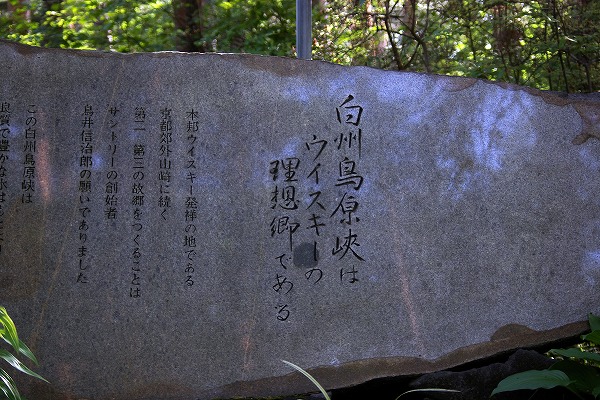 白州鳥原峡は
ウイスキーの
理想郷である
本邦ウイスキー発祥の地である
京都郊外山崎に続く
第二 第三の故郷をつくることは
サントリーの創始者
鳥井信治郎の願いでありました
この白州鳥原峡は
良質で豊かな